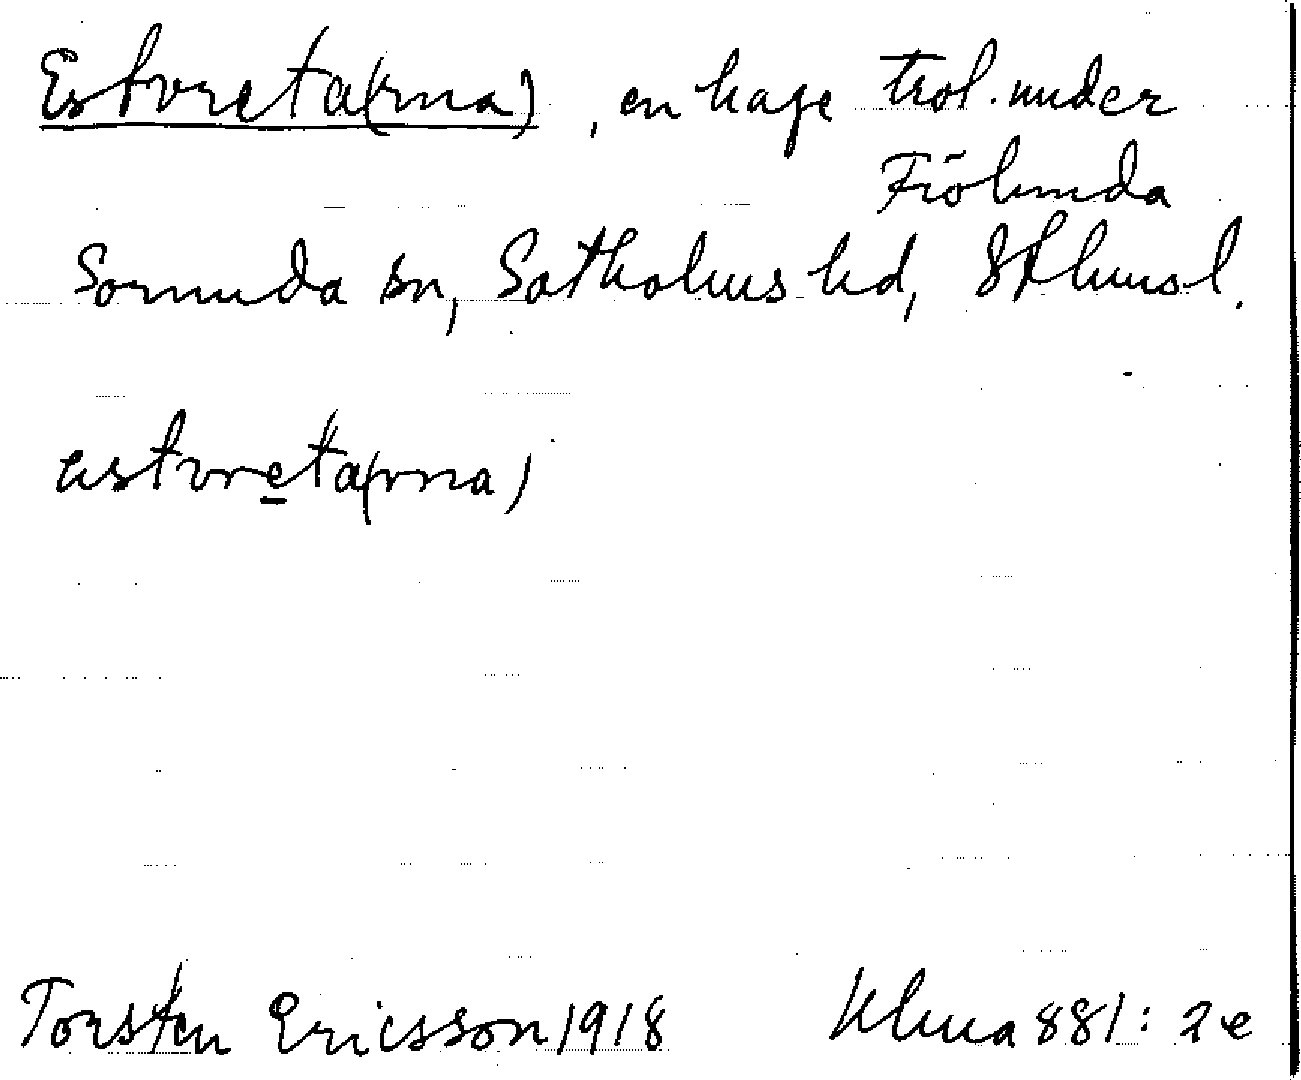 Estvreta(rna), en hage trol. under
Frölunda
Sorunda sn, Sotholms hd, Sthlmsl.
estvreta(rna)
Torsten Ericsson 1918 Ulma 881: 2e